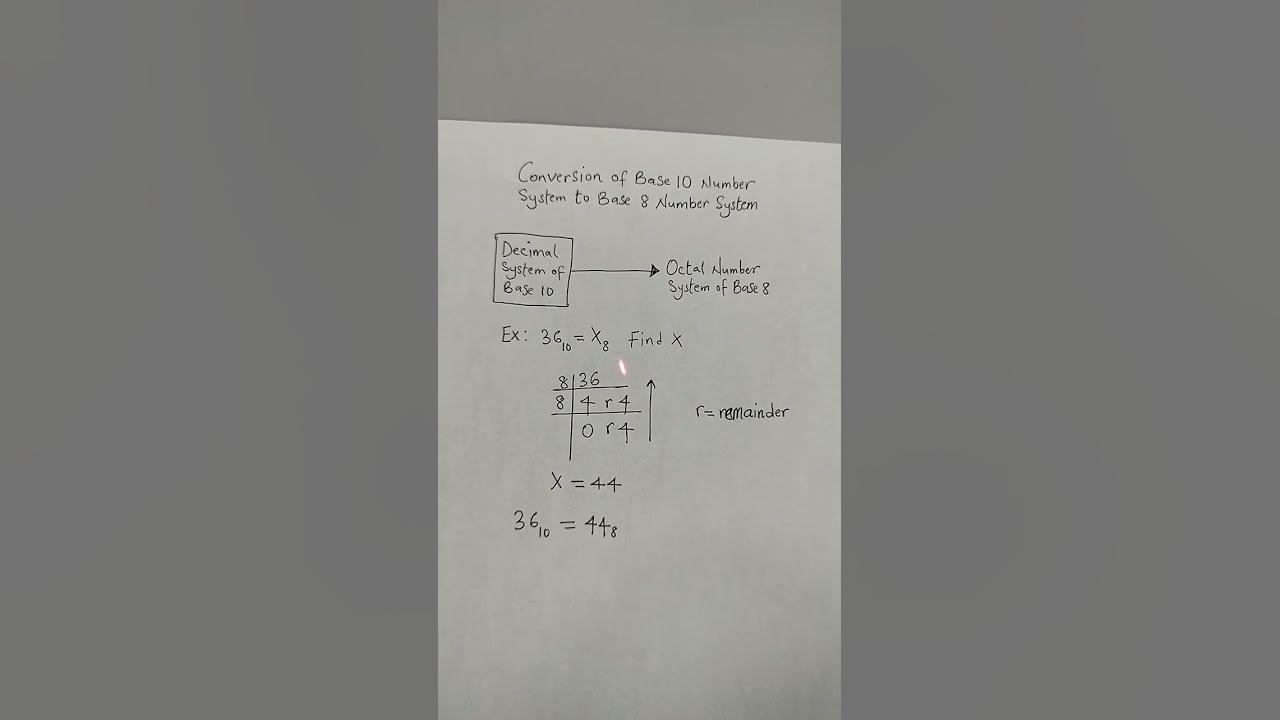 Conversion of Base 10 Number
System to Base 8 Number System
Decimal
System of
Base 10
Octal Number
System of Base 8
Ex: 36₁₀ = X₈ Find X
8 36
8 4 r 4
0 r 4
r = remainder
X = 44
36₁₀ = 44₈